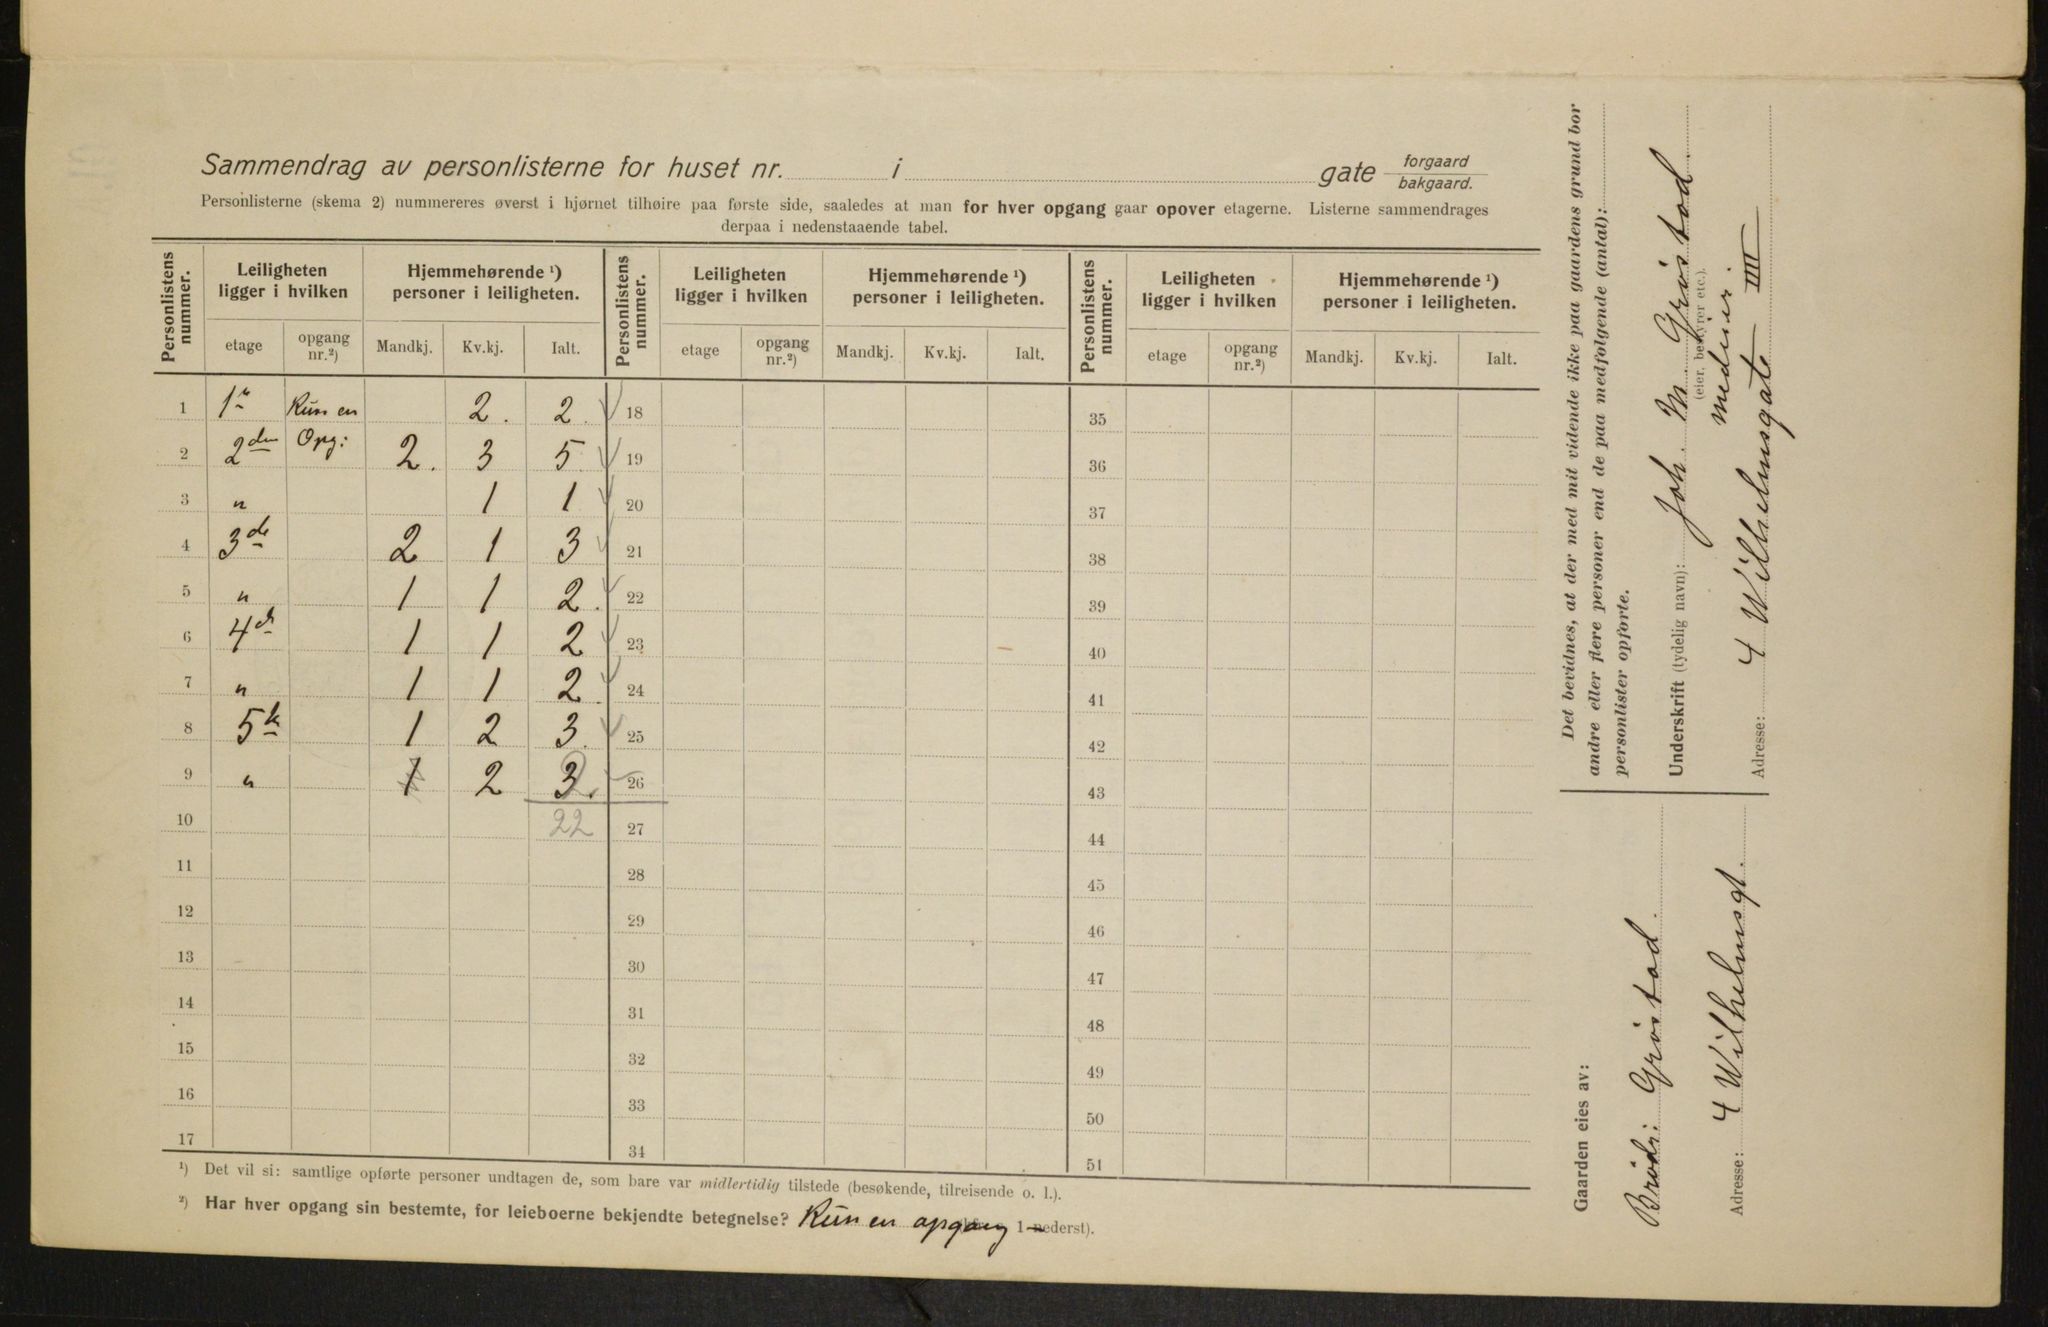 Sammendrag av personlisterne for huset nr. i gate forgaard bakgaard.
Personlisterne (skema 2) nummereres øverst i hjørnet tilhøire paa første side, saaledes at man for hver opgang gaar opover etagerne. Listerne sammendrages
derpaa i nedenstaaende tabel.
Personlistens nummer. Leiligheten ligger i hvilken Hjemmehørende ¹) personer i leiligheten. Personlistens nummer. Leiligheten ligger i hvilken Hjemmehørende ¹) personer i leiligheten. Personlistens nummer. Leiligheten ligger i hvilken Hjemmehørende ¹) personer i leiligheten.
etage opgang nr.²) Mandkj. Kv.kj. Ialt. etage opgang nr.²) Mandkj. Kv.kj. Ialt. etage opgang nr.²) Mandkj. Kv.kj. Ialt.
1 1ste Kun en 2. 2. 18 35
2 2den Opg: 2. 3 5. 19 36
3 " 1 1 20 37
4 3de 2 1 3 21 38
5 " 1 1 2. 22 39
6 4de 1 1 2 23 40
7 " 1 1 2. 24 41
8 5te 1 2 3. 25 42
9 " 1 2 3. 26 43
10 22 27 44
11 28 45
12 29 46
13 30 47
14 31 48
15 32 49
16 33 50
17 34 51
¹) Det vil si: samtlige opførte personer undtagen de, som bare var midlertidig tilstede (besøkende, tilreisende o. l.).
²) Har hver opgang sin bestemte, for leieboerne bekjendte betegnelse? Kun en opgang 1 nederst).
Det bevidnes, at der med mit vidende ikke paa gaardens grund bor
andre eller flere personer end de paa medfølgende (antal):
personlister opførte.
Underskrift (tydelig navn): Joh. M. Gröstad
(eier, bestyrer etc.).
medeier
Adresse: 4 Wilhelmsgate IIII
Gaarden eies av:
Brödr: Gröstad.
Adresse: 4 Wilhelmsgt.